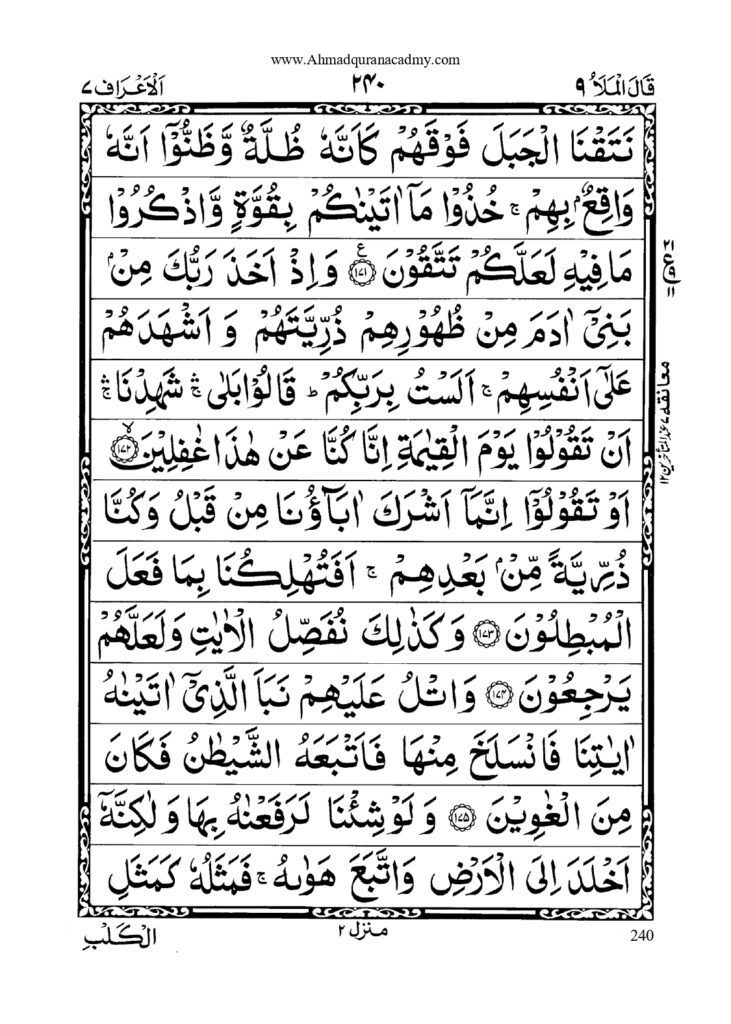 www.Ahmadquranacadmy.com
قَالَ الْمَلَاُ ٩
٢۴٠
اَلْاَعْرَاف ٧
نَتَقْنَا الْجَبَلَ فَوْقَهُمْ كَاَنَّهٗ ظُلَّةٌ وَّظَنُّوْۤا اَنَّهٗ
وَاقِعٌۢ بِهِمْ ۚ خُذُوْا مَاۤ اٰتَيْنٰكُمْ بِقُوَّةٍ وَّاذْكُرُوْا
مَا فِيْهِ لَعَلَّكُمْ تَتَّقُوْنَ ﴿١٧١﴾ ع وَاِذْ اَخَذَ رَبُّكَ مِنْۢ
بَنِيْۤ اٰدَمَ مِنْ ظُهُوْرِهِمْ ذُرِّيَّتَهُمْ وَ اَشْهَدَهُمْ
عَلٰۤى اَنْفُسِهِمْ ۚ اَلَسْتُ بِرَبِّكُمْ ؕ قَالُوْا بَلٰى ۛۚ شَهِدْنَا ۛۚ
اَنْ تَقُوْلُوْا يَوْمَ الْقِيٰمَةِ اِنَّا كُنَّا عَنْ هٰذَا غٰفِلِيْنَ ﴿١٧٢﴾ۙ
اَوْ تَقُوْلُوْۤا اِنَّمَاۤ اَشْرَكَ اٰبَآؤُنَا مِنْ قَبْلُ وَكُنَّا
ذُرِّيَّةً مِّنْۢ بَعْدِهِمْ ۚ اَفَتُهْلِكُنَا بِمَا فَعَلَ
الْمُبْطِلُوْنَ ﴿١٧٣﴾ وَكَذٰلِكَ نُفَصِّلُ الْاٰيٰتِ وَلَعَلَّهُمْ
يَرْجِعُوْنَ ﴿١٧۴﴾ وَاتْلُ عَلَيْهِمْ نَبَاَ الَّذِيْۤ اٰتَيْنٰهُ
اٰيٰتِنَا فَانْسَلَخَ مِنْهَا فَاَتْبَعَهُ الشَّيْطٰنُ فَكَانَ
مِنَ الْغٰوِيْنَ ﴿١٧٥﴾ وَلَوْ شِئْنَا لَرَفَعْنٰهُ بِهَا وَلٰكِنَّهٗۤ
اَخْلَدَ اِلَى الْاَرْضِ وَاتَّبَعَ هَوٰىهُ ۚ فَمَثَلُهٗ كَمَثَلِ
٢١
ع
١١
معانقه ٧
240
منزل ٢
الْكَلْبِ